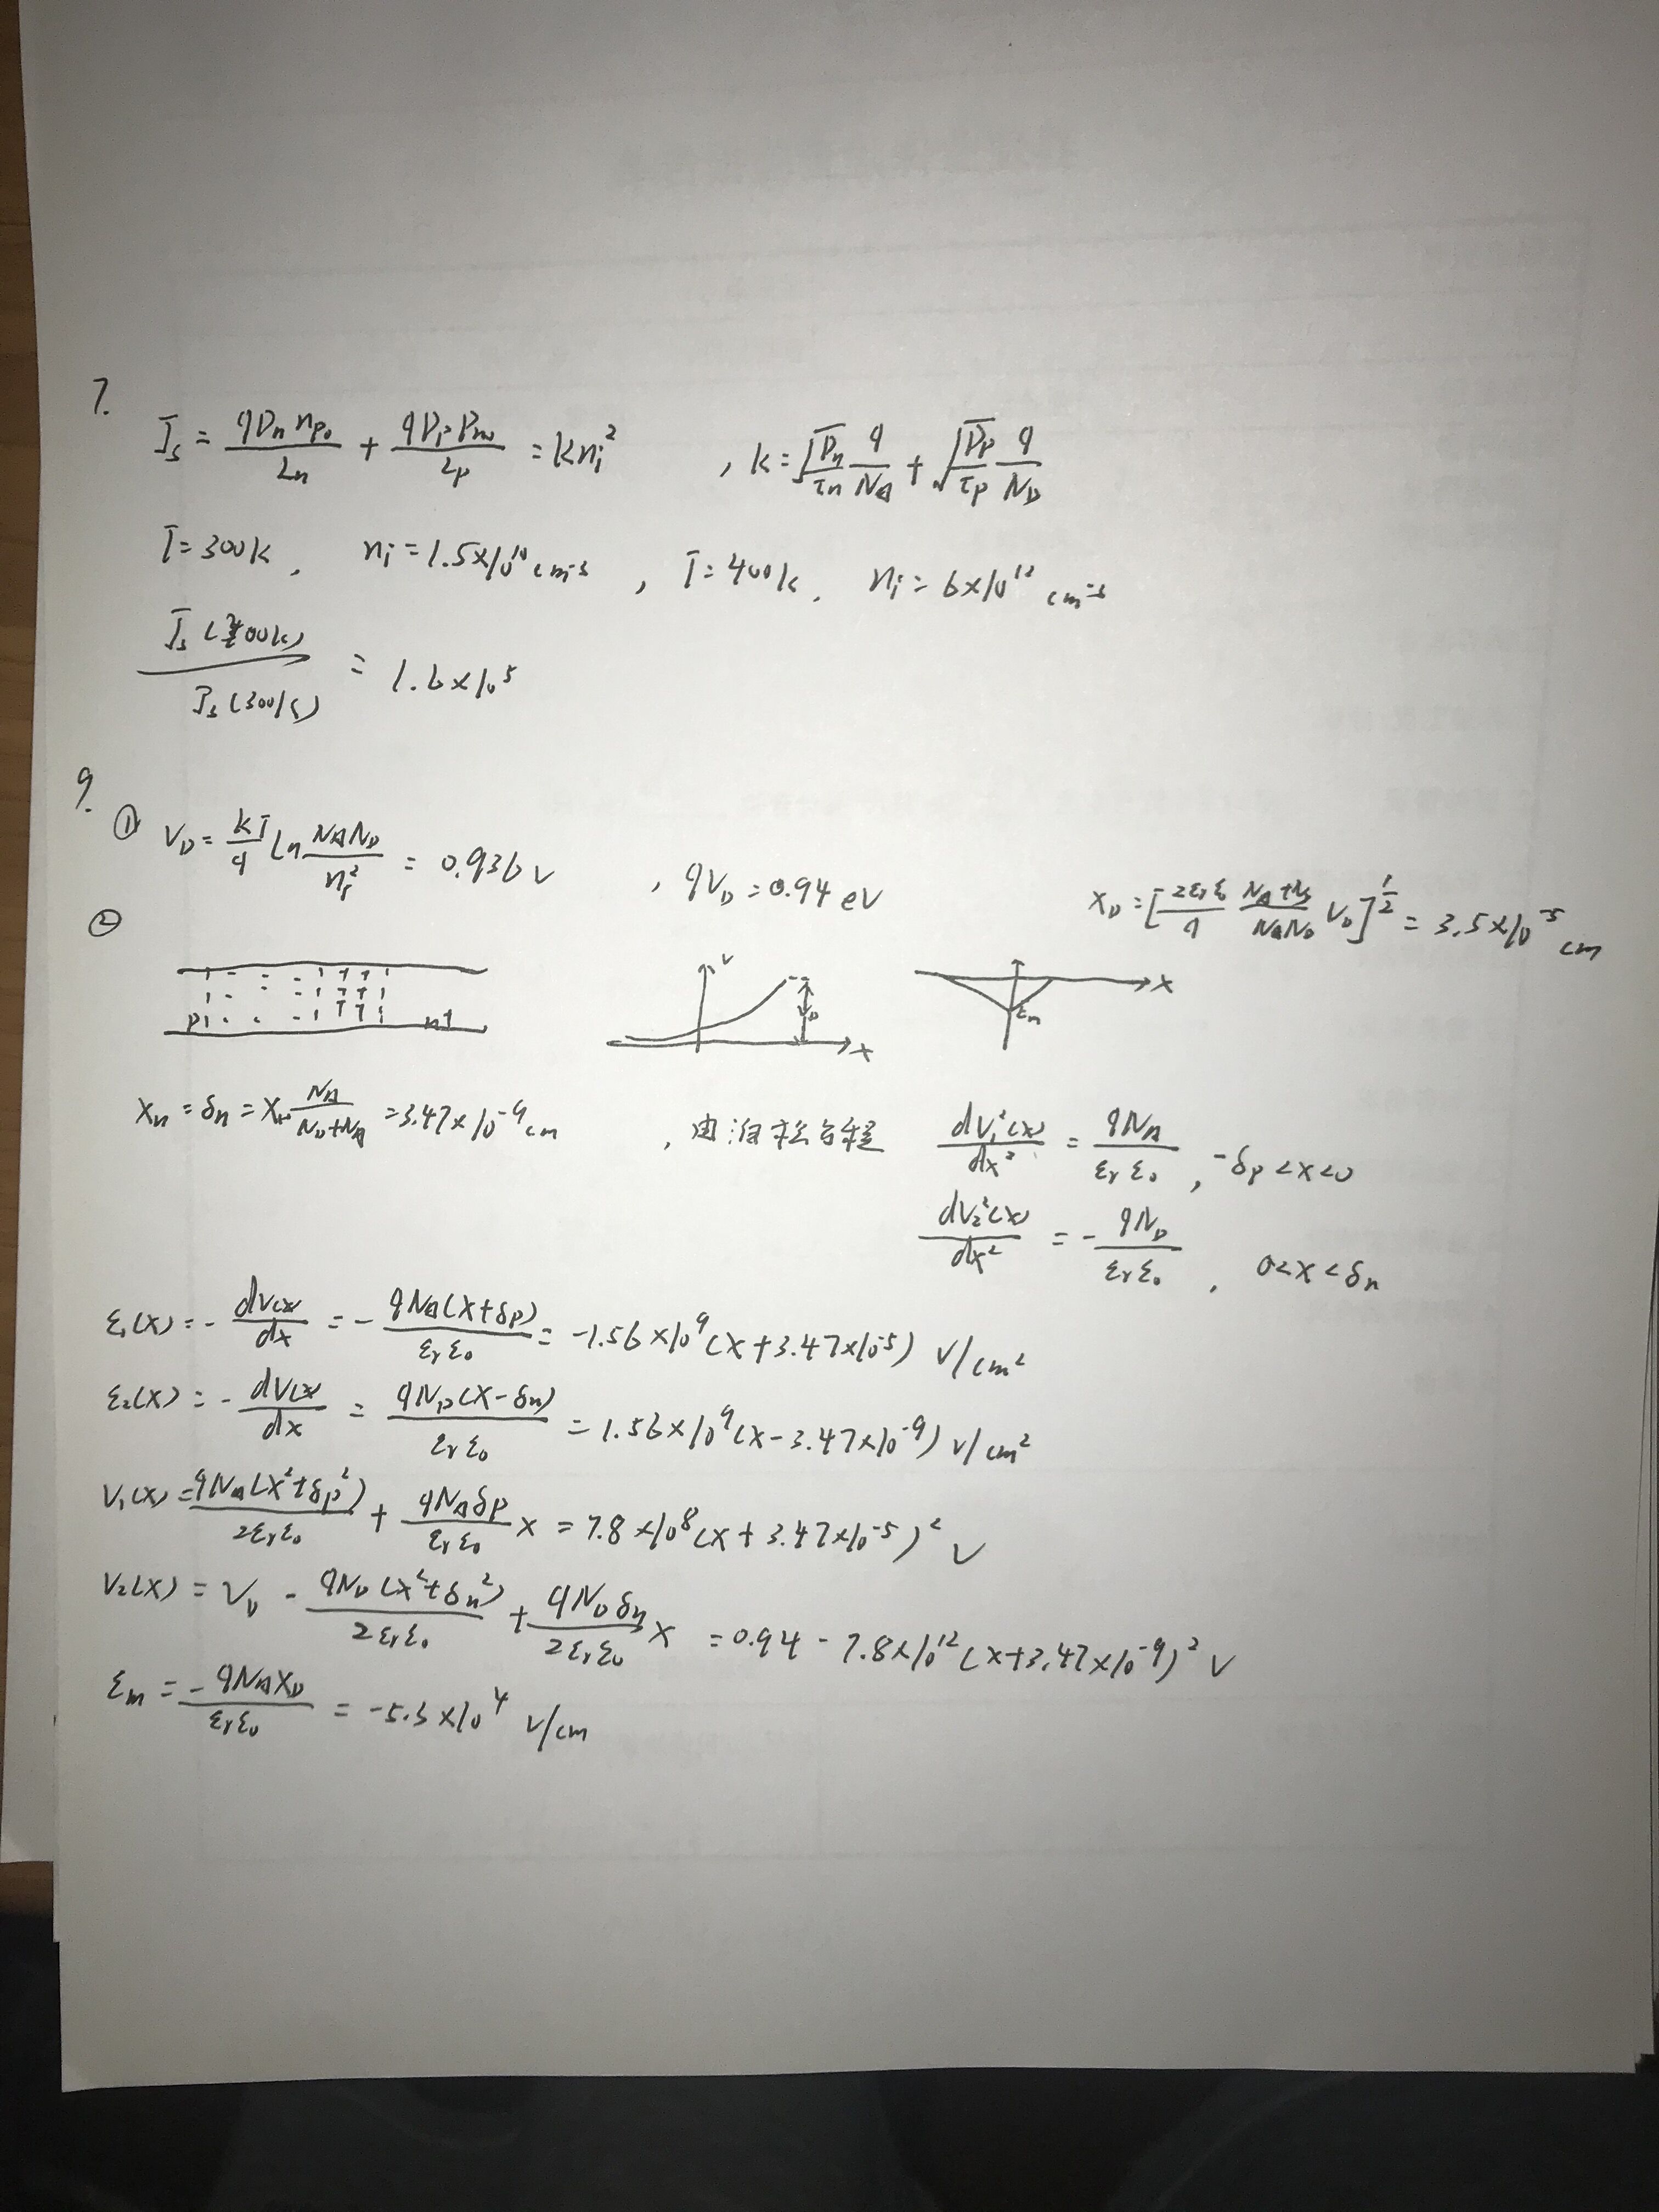 7.
J_s = qD_n n_p0 / L_n + qD_p p_n0 / L_p = k n_i^2 , k = √(D_n/τ_n) q/N_A + √(D_p/τ_p) q/N_D
T = 300k, n_i = 1.5×10^10 cm^-3, T = 400k, n_i = 6×10^12 cm^-3
J_s(400k) / J_s(300k) = 1.6×10^5
9.
① V_D = kT/q Ln N_A N_D / n_i^2 = 0.936 V , qV_D = 0.94 eV
② X_D = [2ε_r ε_0 / q (N_A+N_D)/(N_A N_D) V_D]^1/2 = 3.5×10^-5 cm
P n+
V V_D X
X ε_m
X_n = δ_n = X_D N_A/(N_D+N_A) = 3.47×10^-9 cm , 由泊松方程 dV_1^2(x)/dx^2 = qN_A/(ε_r ε_0) , -δ_p < x < 0
dV_2^2(x)/dx^2 = - qN_D/(ε_r ε_0) , 0 < x < δ_n
ε_1(x) = - dV(x)/dx = - qN_A(x+δ_p)/(ε_r ε_0) = -1.56×10^9 (x+3.47×10^-5) V/cm^2
ε_2(x) = - dV(x)/dx = qN_D(x-δ_n)/(ε_r ε_0) = 1.56×10^9 (x-3.47×10^-9) V/cm^2
V_1(x) = qN_A(x^2+δ_p^2)/(2ε_r ε_0) + qN_A δ_p/(ε_r ε_0) x = 7.8×10^8 (x+3.47×10^-5)^2 V
V_2(x) = V_D - qN_D(x^2+δ_n^2)/(2ε_r ε_0) + qN_D δ_n/(2ε_r ε_0) x = 0.94 - 7.8×10^12 (x+3.47×10^-9)^2 V
ε_m = - qN_A X_D/(ε_r ε_0) = -5.3×10^4 V/cm